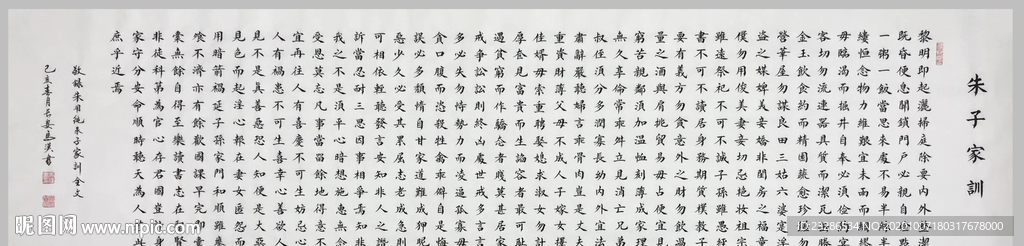 朱子家訓
黎明即起灑掃庭除要內外
既昏便息關鎖門户必親自
一粥一飯當思來處不易半
縷恒念物力維艱宜未雨而
毋臨渴而掘井自奉必須儉
客切勿流連器具質而潔瓦
金玉飲食約而精園蔬愈珍
營華屋勿謀良田三姑六婆
盜之媒婢美妾嬌非閨房之福
僕勿用俊美妻妾切忌艷妝祖宗
雖遠祭祀不可不誠子孫雖愚
書不可不讀居身務期質樸
要有義方勿貪意外之財勿飲
量之酒與肩挑貿易毋占便
窮苦親鄰須加溫恤刻
久享倫常乖舛立見消亡兄弟
叔侄須分多潤寡長幼內外宜法
肅辭嚴聽婦言乖骨肉豈是丈
重資財薄父母不成人子嫁女擇
佳婿毋索重聘娶媳求淑女勿計
厚奩見富貴而生諂容者最可
遇貧窮而作驕態者賤莫甚
戒爭訟訟則終凶處世戒多言
多必失勿恃勢力而凌逼孤寡
貪口腹而恣殺牲禽乖僻自是
誤必多頹惰自甘家道難成狎昵
惡少久必受其累屈志老成急
可相依輕聽發言安知非人之
訴當忍耐三思因事相爭焉知
我之不是須平心暗想施惠無念
受恩莫忘凡事當留餘地得意不
宜再往人有喜慶不可生妒忌心
人有禍患不可生喜幸心善欲
見不是真善惡恐人知便是大惡
見色而起淫心報在妻女匿怨
用暗箭禍延子孫家門和順雖
飧不濟亦有餘歡國課早完即
橐無餘自得至樂讀書志在聖
非徒科第為官心存君國豈計
家守分安命順時聽天為人
庶乎近焉
敬錄朱用純朱子家訓全文
昵图网
www.nipic.com
ID:23286554 NO:20201002180317678000